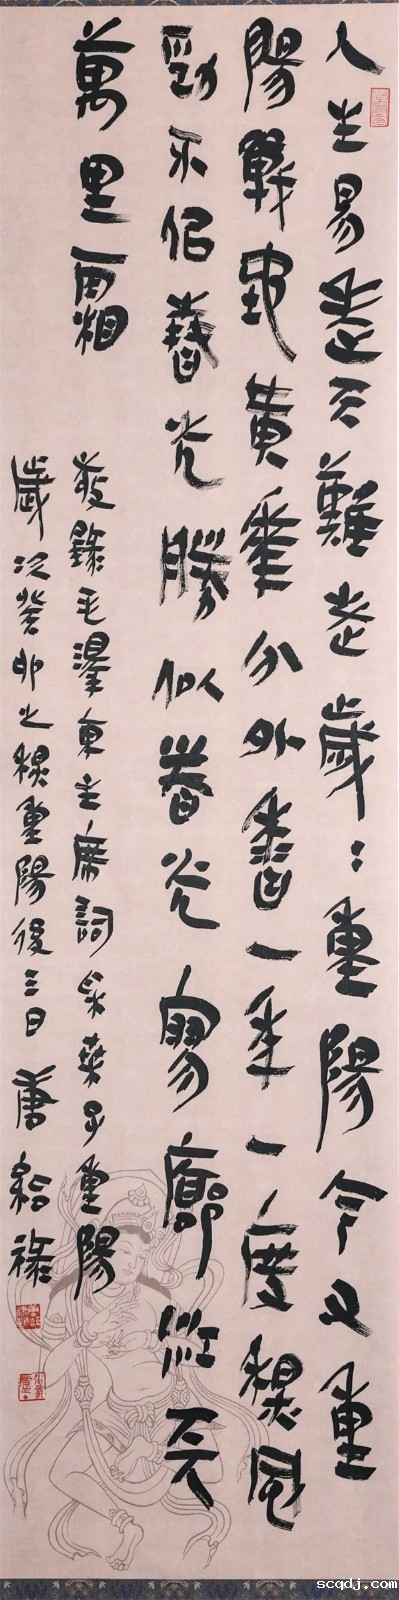 人生易老天難老歲:重陽今又重
陽戰地黄華分外香一年一度穐風
勁不侣春光勝似春光寥廓江天
萬里霜
敬錄毛澤東主席詞采桑子重陽
歲次癸卯之穐重陽後三日 唐
scqdj.com